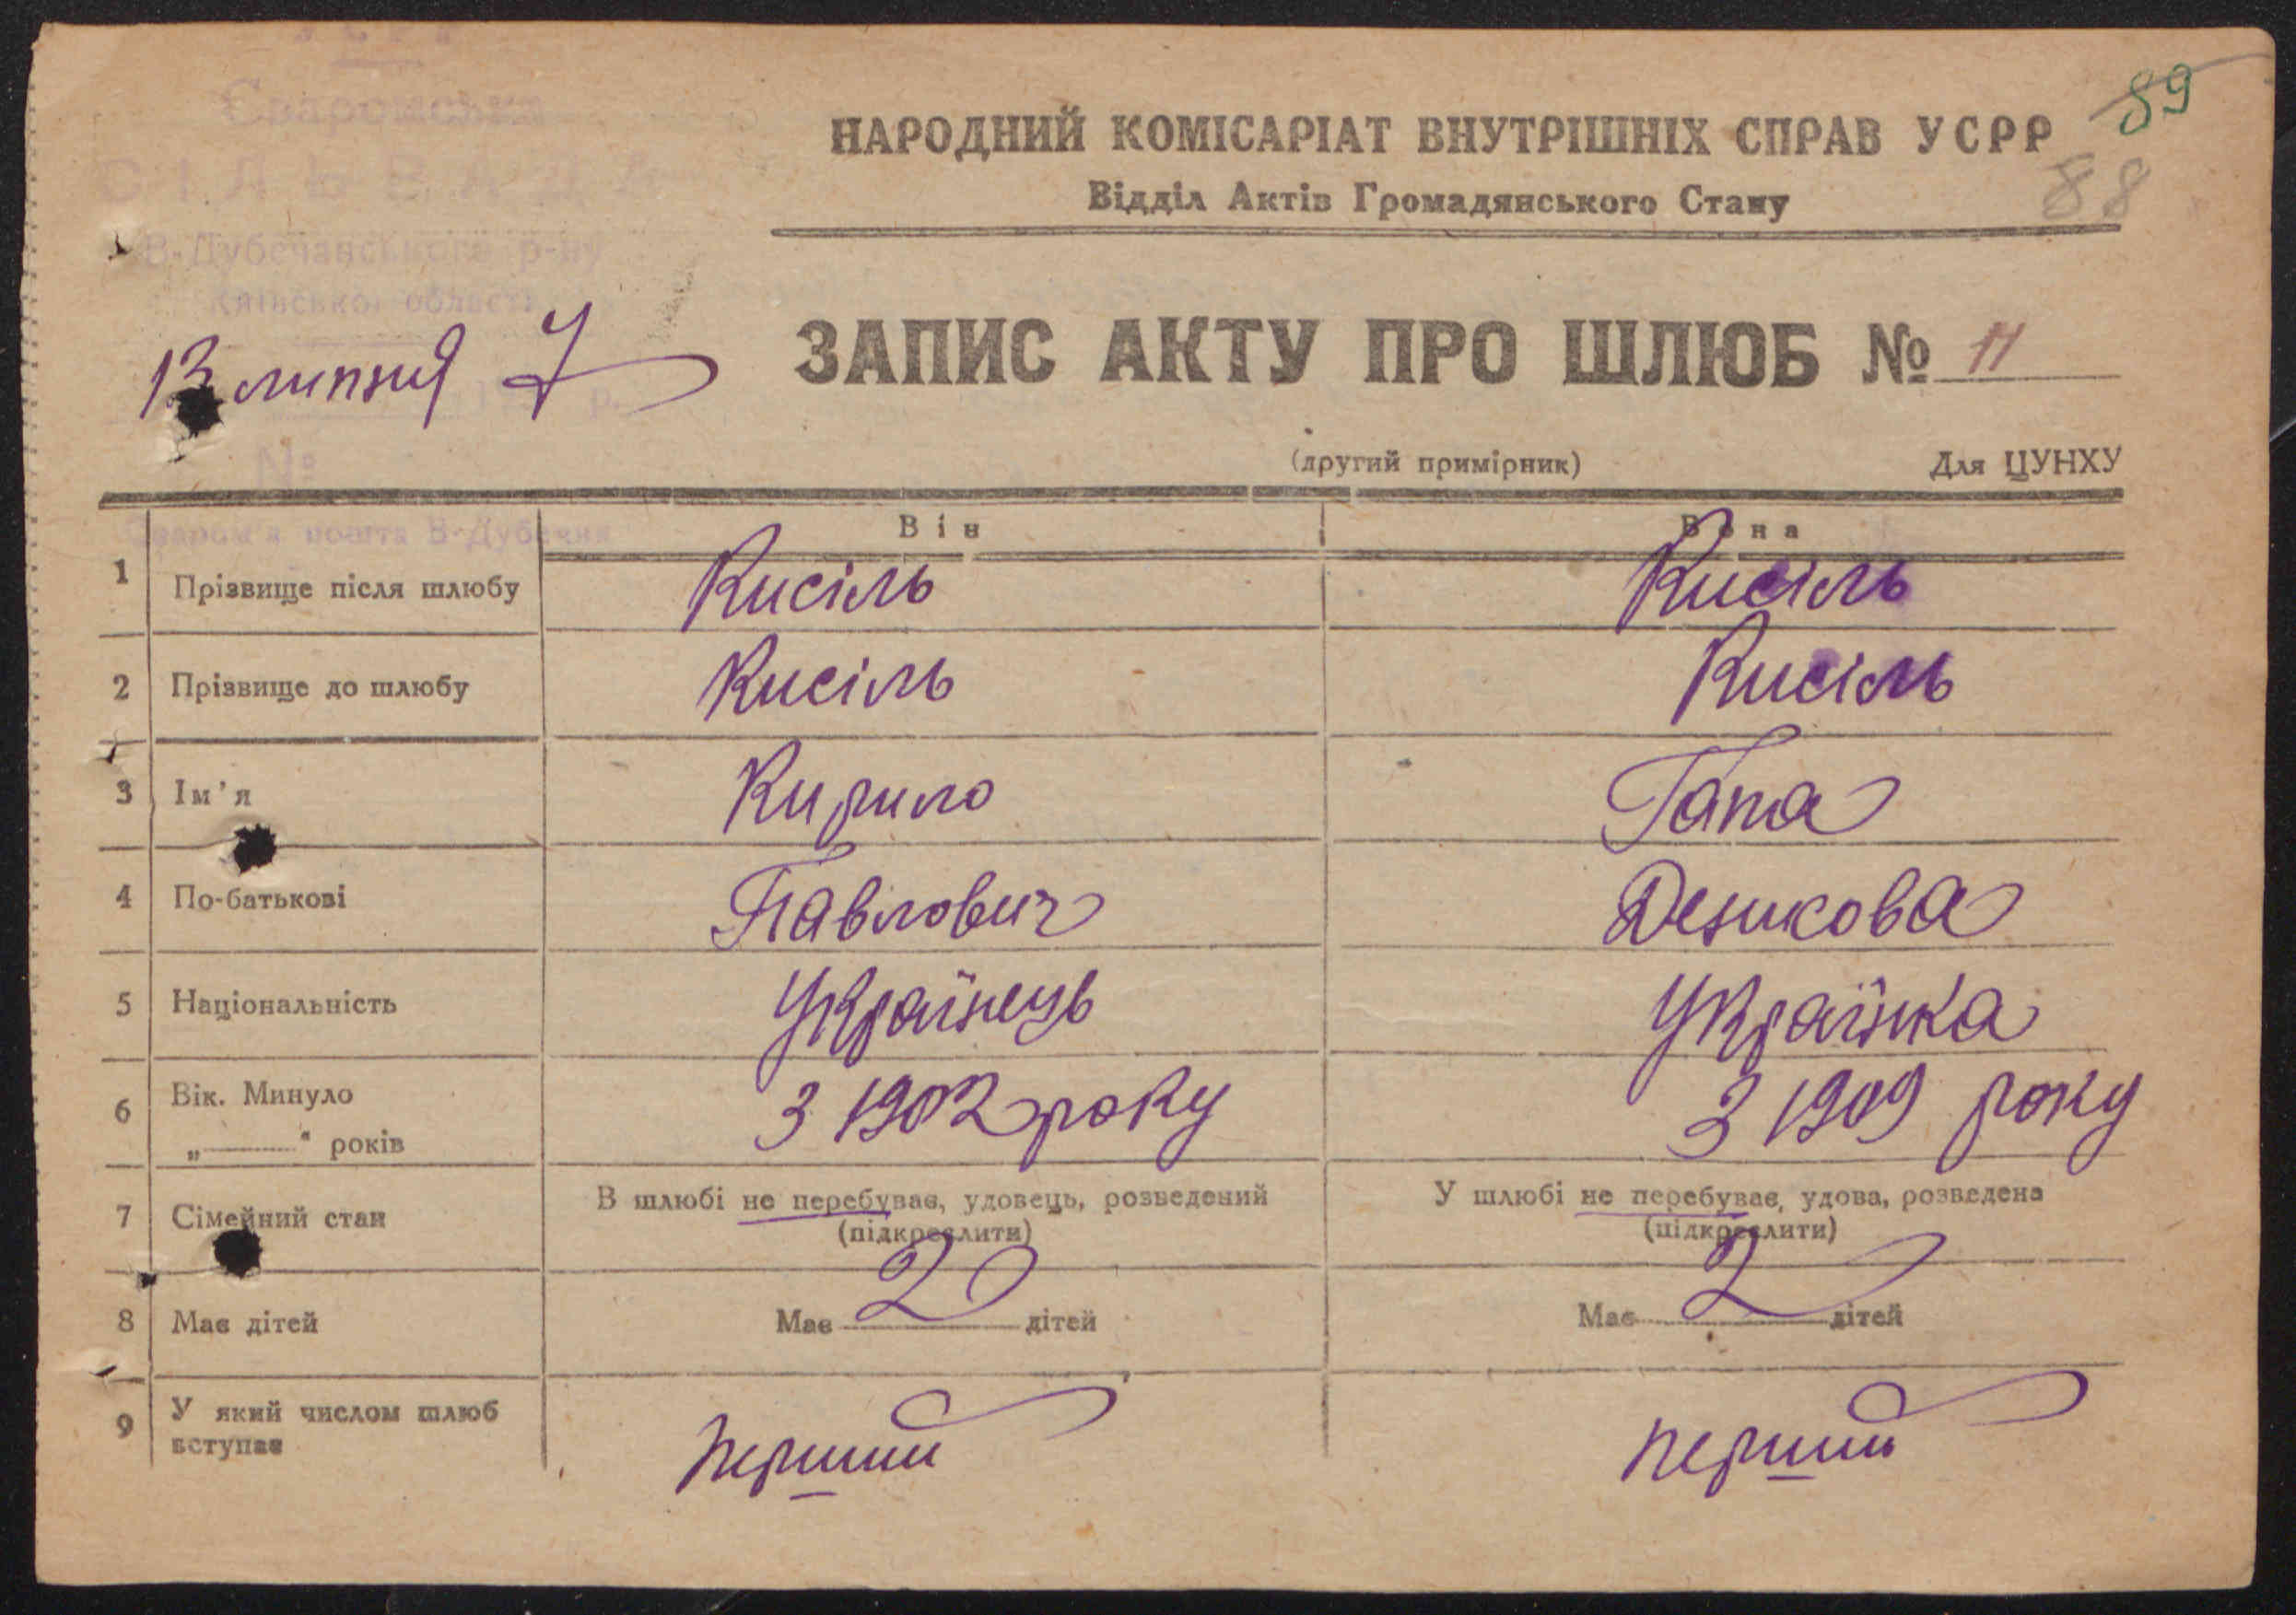 УСРР
Сваромська
СІЛЬРАДА
В-Дубечанського р-ну
Київської области
13 липня 7
№
Сваром'я пошта В-Дубечня
89
НАРОДНИЙ КОМІСАРІАТ ВНУТРІШНІХ СПРАВ УСРР
88
Відділ Актів Громадянського Стану
ЗАПИС АКТУ ПРО ШЛЮБ № 11
(другий примірник) Для ЦУНХУ
Він Вона
1 Прізвище після шлюбу Кисіль Кисіль
2 Прізвище до шлюбу Кисіль Кисіль
3 Ім'я Кирило Гапа
4 По-батькові Павлович Демкова
5 Національність Українець Українка
6 Вік. Минуло З 1902 року З 1909 року
„———“ років
7 Сімейний стан В шлюбі не перебуває, удовець, розведений У шлюбі не перебуває, удова, розведена
(підкреслити) (підкреслити)
8 Має дітей Має 2 дітей Має 2 дітей
9 У який числом шлюб вступає перший перший